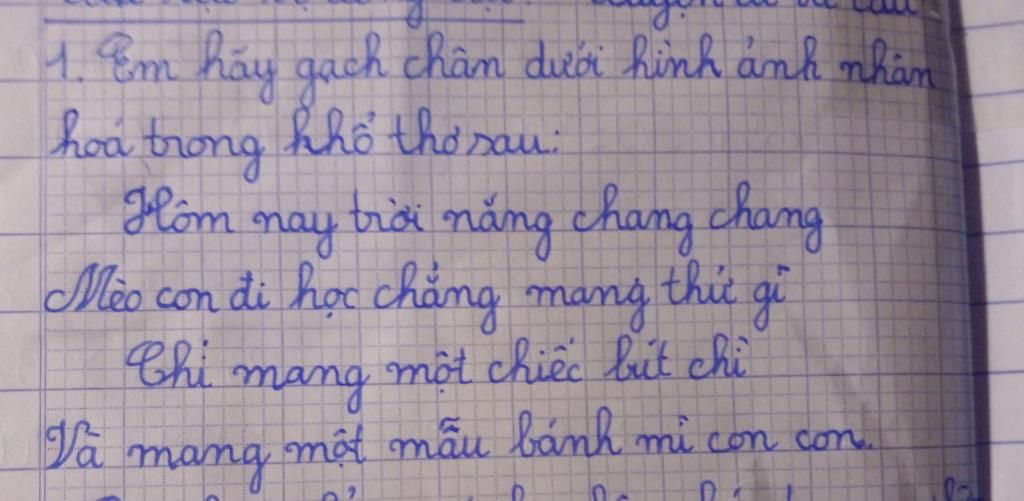 1. Em hãy gạch chân dưới hình ảnh nhân
hoá trong khổ thơ sau:
Hôm nay trời nắng chang chang
Mèo con đi học chẳng mang thứ gì
Chỉ mang một chiếc bút chì
Và mang một mẫu bánh mì con con.